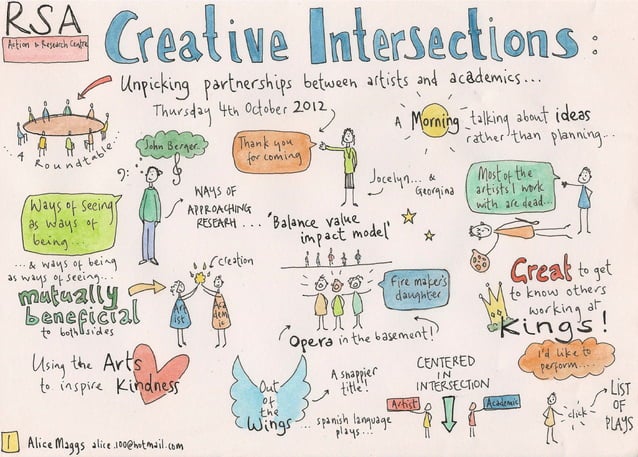 RSA
Action & Research Centre
Creative Intersections:
Unpicking partnerships between artists and academics...
Thursday 4th October 2012
A Morning talking about ideas
rather than planning...
A Roundtable...
John Berger..
Thank you
for coming
Jocelyn... &
Georgina
Most of the
artists I work
with are dead...
Ways of Seeing
as Ways of
being...
WAYS OF
APPROACHING
RESEARH ....
'Balance value
impact model'
... & ways of being
as ways of seeing...
mutually
beneficial
to both sides
Creation
Art
ist
Aca
dem
ic
Fire maker's
daughter
Opera in the basement!
Great to get
to know others
working at
Kings!
I'd like to
perform....
Using the Arts
to inspire Kindness
Out
of
the
Wings...
A snappier
title!
spanish language
plays...
CENTERED
IN
INTERSECTION
Artist
Academic
click
LIST
OF
PLAYS
1 Alice Maggs alice.100@hotmail.com